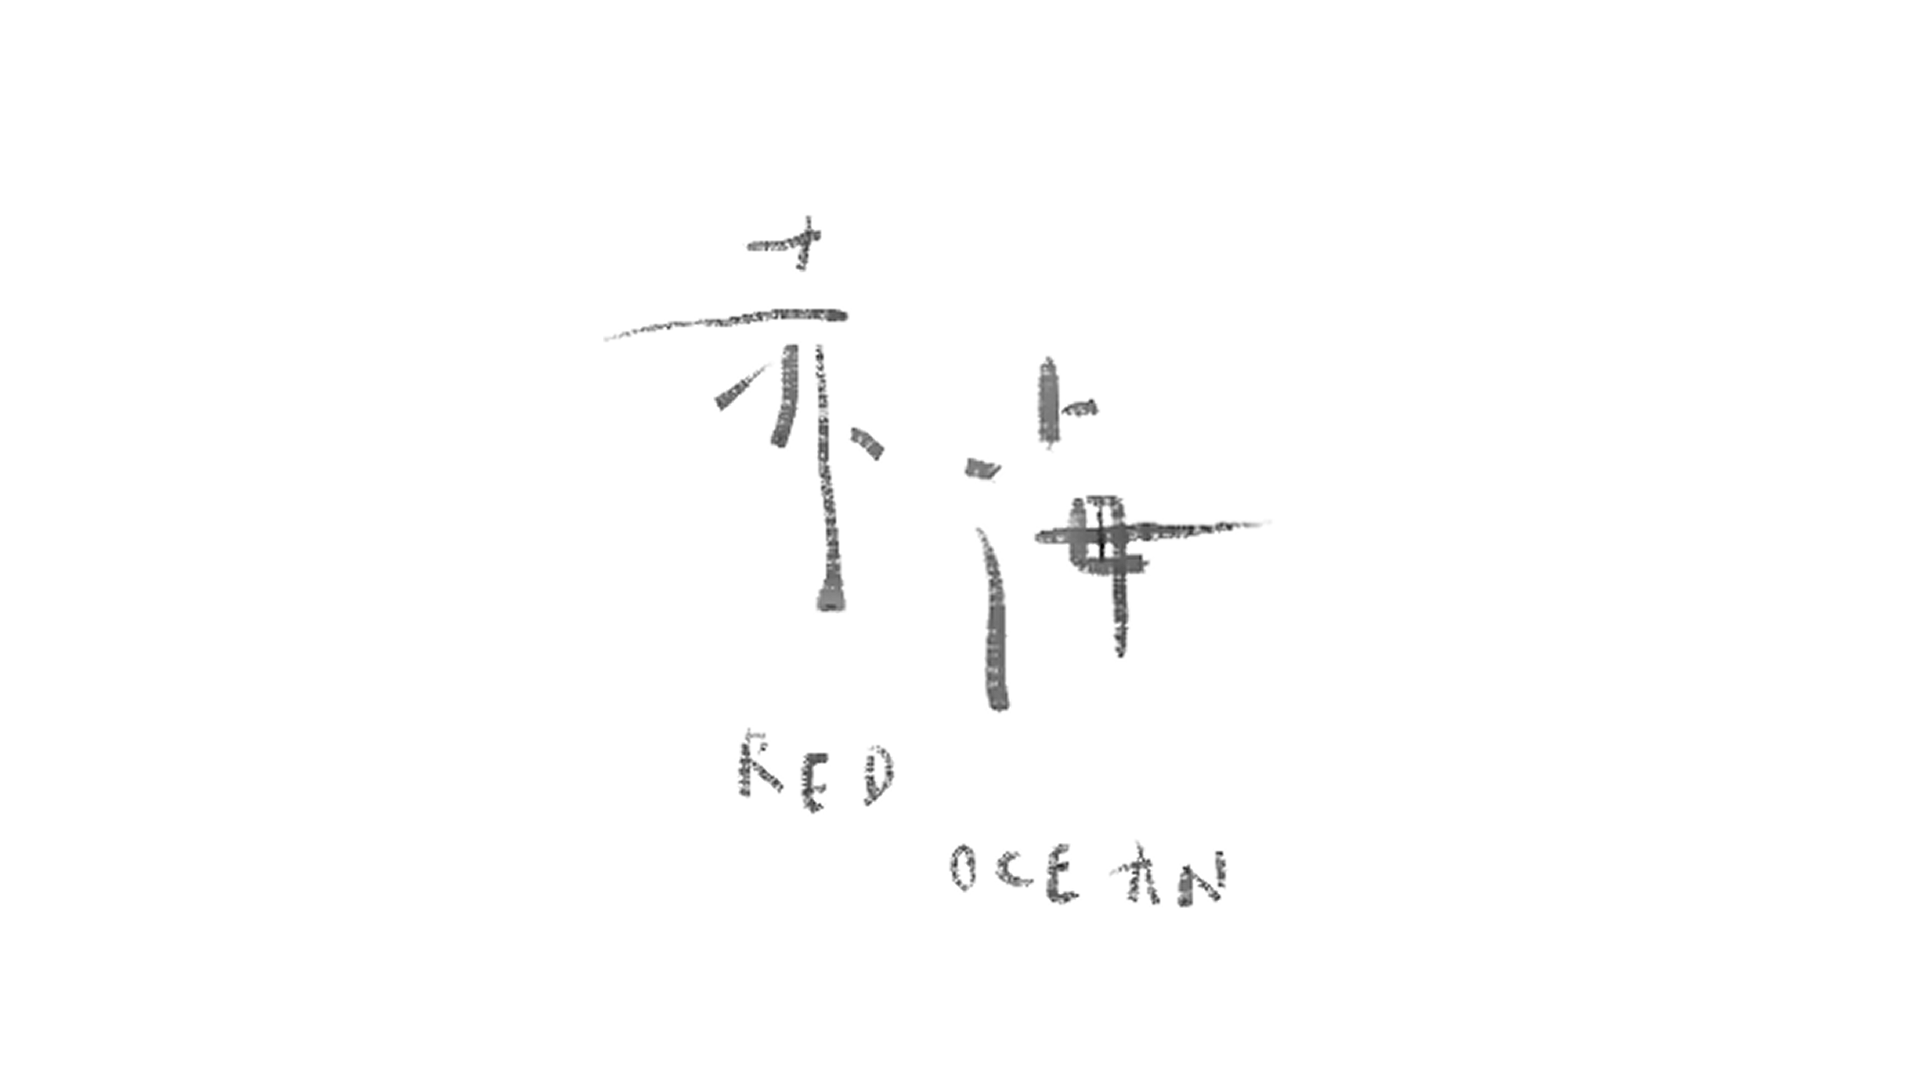 赤海
RED
OCEAN